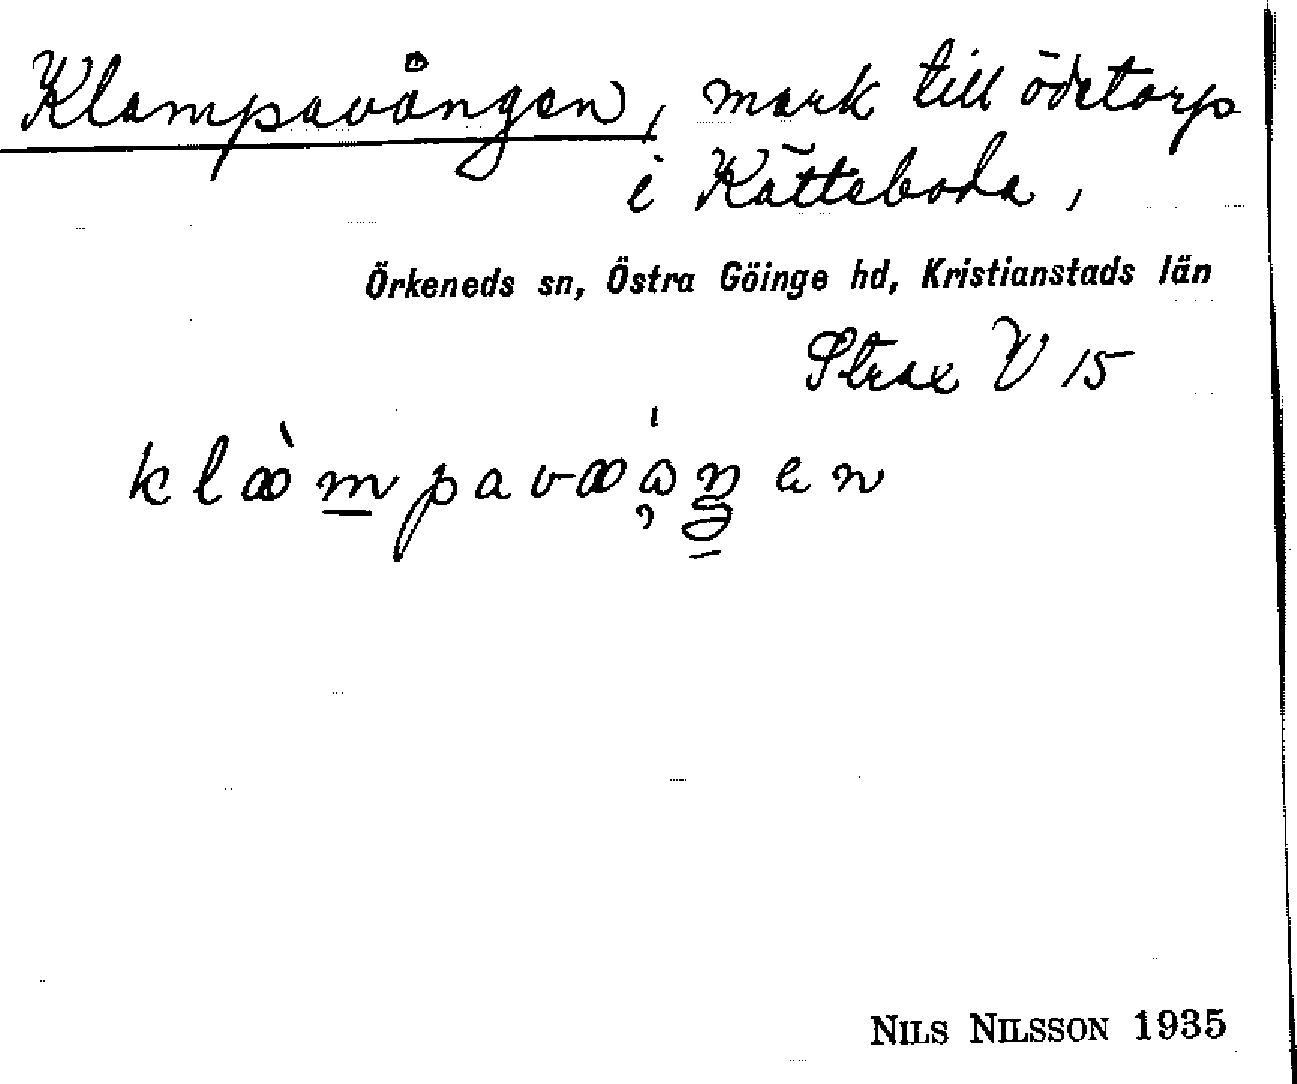 Klampavången, mark till ödetorp
i Kätteboda,
Örkeneds sn, Östra Göinge hd, Kristianstads län
Strax V 15
NILS NILSSON 1935